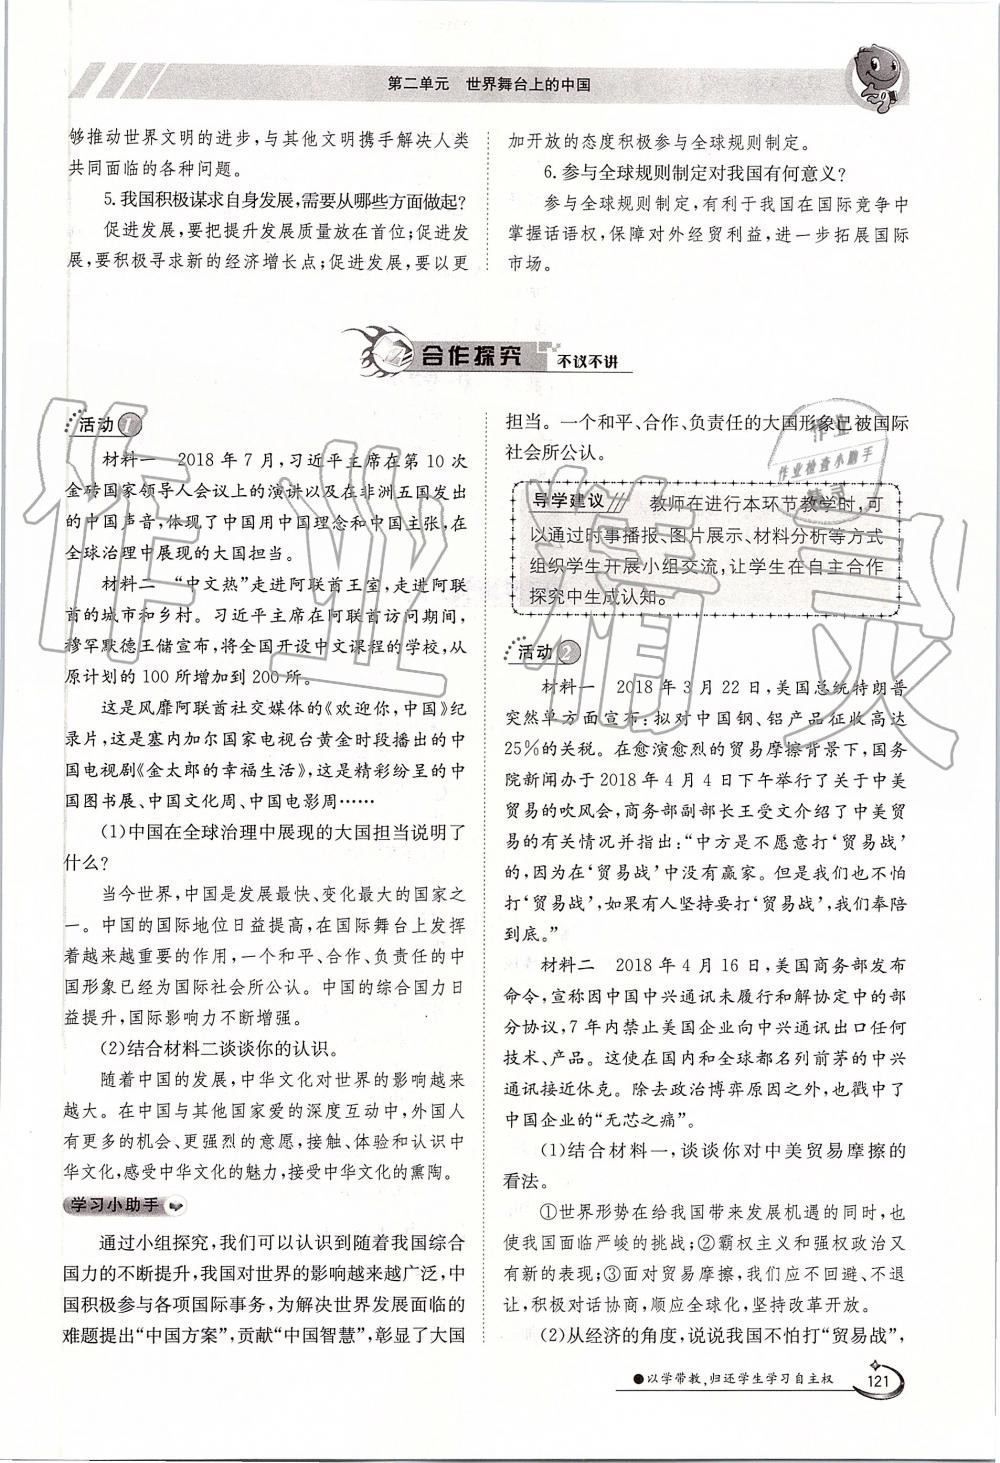 第二单元　世界舞台上的中国
够推动世界文明的进步，与其他文明携手解决人类
共同面临的各种问题。
5.我国积极谋求自身发展，需要从哪些方面做起？
促进发展，要把提升发展质量放在首位；促进发
展，要积极寻求新的经济增长点；促进发展，要以更
加开放的态度积极参与全球规则制定。
6.参与全球规则制定对我国有何意义？
参与全球规则制定，有利于我国在国际竞争中
掌握话语权，保障对外经贸利益，进一步拓展国际
市场。
合作探究　不议不讲
活动1
材料一　2018年7月，习近平主席在第10次
金砖国家领导人会议上的演讲以及在非洲五国发出
的中国声音，体现了中国用中国理念和中国主张，在
全球治理中展现的大国担当。
材料二　“中文热”走进阿联酋王室，走进阿联
酋的城市和乡村。习近平主席在阿联酋访问期间，
穆罕默德王储宣布，将全国开设中文课程的学校，从
原计划的100所增加到200所。
这是风靡阿联酋社交媒体的《欢迎你，中国》纪
录片，这是塞内加尔国家电视台黄金时段播出的中
国电视剧《金太郎的幸福生活》，这是精彩纷呈的中
国图书展、中国文化周、中国电影周……
(1)中国在全球治理中展现的大国担当说明了
什么？
当今世界，中国是发展最快、变化最大的国家之
一。中国的国际地位日益提高，在国际舞台上发挥
着越来越重要的作用，一个和平、合作、负责任的中
国形象已经为国际社会所公认。中国的综合国力日
益提升，国际影响力不断增强。
(2)结合材料二谈谈你的认识。
随着中国的发展，中华文化对世界的影响越来
越大。在中国与其他国家爱的深度互动中，外国人
有更多的机会、更强烈的意愿，接触、体验和认识中
华文化，感受中华文化的魅力，接受中华文化的熏陶。
学习小助手
通过小组探究，我们可以认识到随着我国综合
国力的不断提升，我国对世界的影响越来越广泛，中
国积极参与各项国际事务，为解决世界发展面临的
难题提出“中国方案”，贡献“中国智慧”，彰显了大国
担当。一个和平、合作、负责任的大国形象已被国际
社会所公认。
导学建议　教师在进行本环节教学时，可
以通过时事播报、图片展示、材料分析等方式
组织学生开展小组交流，让学生在自主合作
探究中生成认知。
活动2
材料一　2018年3月22日，美国总统特朗普
突然单方面宣布：拟对中国钢、铝产品征收高达
25%的关税。在愈演愈烈的贸易摩擦背景下，国务
院新闻办于2018年4月4日下午举行了关于中美
贸易的吹风会，商务部副部长王受文介绍了中美贸
易的有关情况并指出：“中方是不愿意打‘贸易战’
的，因为在‘贸易战’中没有赢家。但是我们也不怕
打‘贸易战’，如果有人坚持要打‘贸易战’，我们奉陪
到底。”
材料二　2018年4月16日，美国商务部发布
命令，宣称因中国中兴通讯未履行和解协定中的部
分协议，7年内禁止美国企业向中兴通讯出口任何
技术、产品。这使在国内和全球都名列前茅的中兴
通讯接近休克。除去政治博弈原因之外，也戳中了
中国企业的“无芯之痛”。
(1)结合材料一，谈谈你对中美贸易摩擦的
看法。
①世界形势在给我国带来发展机遇的同时，也
使我国面临严峻的挑战；②霸权主义和强权政治又
有新的表现；③面对贸易摩擦，我们应不回避、不退
让，积极对话协商，顺应全球化，坚持改革开放。
(2)从经济的角度，说说我国不怕打“贸易战”，
●以学带教，归还学生学习自主权
121
作业精灵
作业
作业检查小助手
精灵